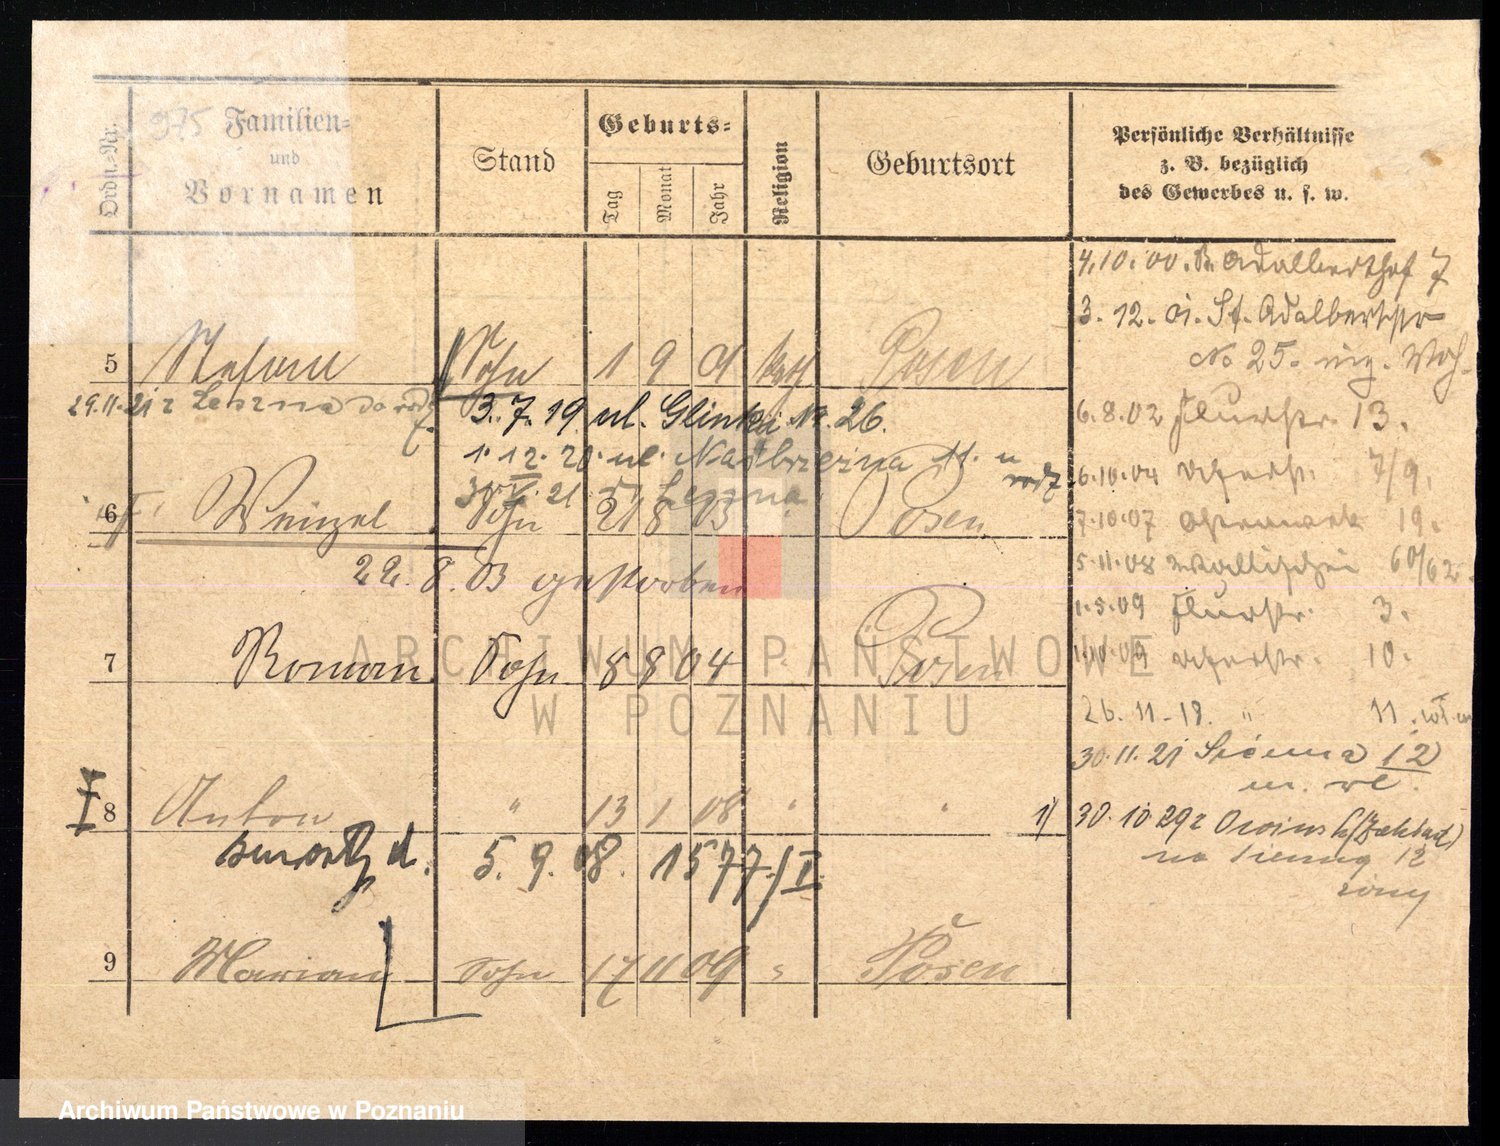 975
Ordn.-Nr.
Familien-
und
Vornamen
Stand
Geburts-
Tag
Monat
Jahr
Religion
Geburtsort
Persönliche Verhältnisse
z. B. bezüglich
des Gewerbes u. s. w.
4.10.00. Adalberthof 7
3. 12. 01. St. Adalbertstr
No 25.
5 Stefan Sohn 1 9 01 kath Posen
29.11.21 z Leszna do
3. 7. 19 ul. Glinki Nr. 26.
6.8.02 Flurstr. 13.
1. 12. 20. ul. Nadbrzeżna 11. u
rodz
21 z Leszna
6.10.04 7/9.
6 Wenzel Sohn 21 8 03 Posen
7.10.07 Ostrowek 19.
22. 8. 03 gestorben
5.11.08 Wallischei 60/62.
1.5.09 Flurstr. 3.
7 Roman Sohn 8 8 04 Posen
1.10.09 10.
26. 11. 18. " 11.
30.11.21 12
8 Anton " 13 1 08 " "
1) 30. 10. 29 z
12
żony
5. 9. 08. 1577/I
9 Marian Sohn 17 11 09 " Posen
ARCHIWUM PAŃSTWOWE
W POZNANIU
Archiwum Państwowe w Poznaniu